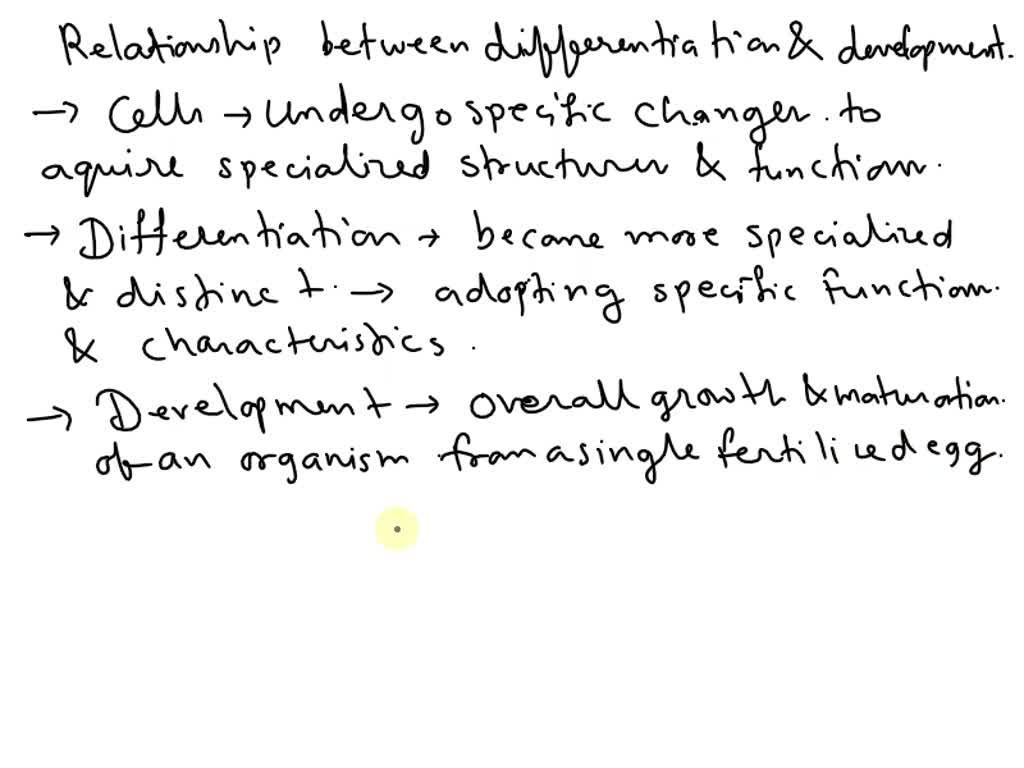 Relationship between differentiation & development.
→ Cells → undergo specific changes. to
aquire specialized structures & function.
→ Differentiation → became more specialized
& distinct. → adopting specific function.
& characteristics.
→ Development → overall growth & maturation.
of an organism from a single fertilized egg.